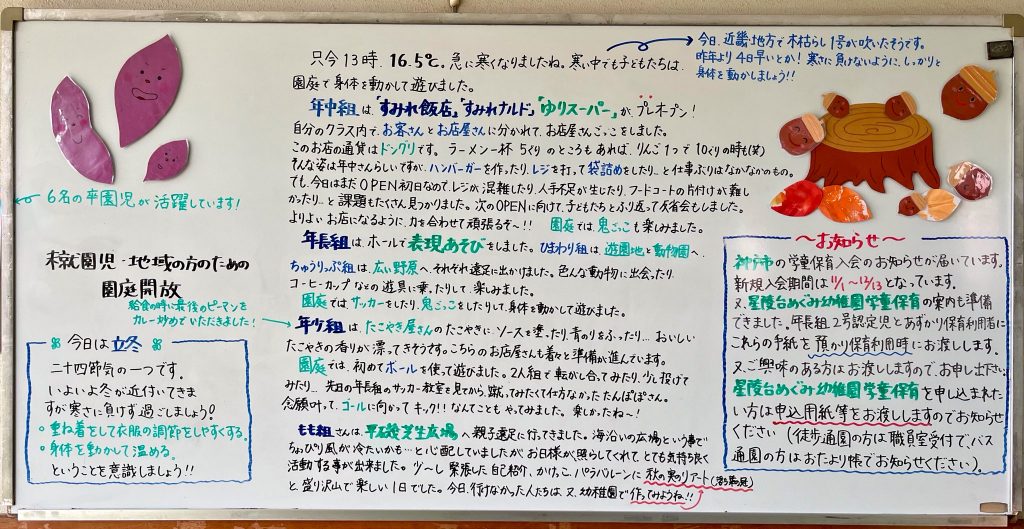 只今13時、16.5℃。急に寒くなりましたね。寒い中でも子どもたちは、
園庭で身体を動かして遊びました。
今日、近畿地方で木枯らし1号が吹いたそうです。
昨年より4日早いとか！寒さに負けないように、しっかりと
身体を動かしましょう!!
年中組は、「すみれ飯店」「すみれナルド」「ゆりスーパー」が、プレオープン！
自分のクラス内で、お客さんとお店屋さんに分かれて、お店屋さんごっこをしました。
このお店の通貨はドングリです。ラーメン一杯5ぐりのところもあれば、りんご1つで10ぐりの時も(笑)
そんな姿は年中さんらしいですが、ハンバーガーを作ったり、レジを打って袋詰めをしたり…と仕事ぶりはなかなかのもの。
でも、今日はまだOPEN初日なので、レジが混雑したり、人手不足が生じたり、フードコートの片付けが難し
かったり…と課題もたくさん見つかりました。次のOPENに向けて、子どもたちとふり返って反省会もしました。
よりよいお店になるように、力を合わせて頑張るぞ〜!! 園庭では鬼ごっこも楽しみました。
年長組は、ホールで表現あそびをしました。ひまわり組は、遊園地と動物園へ、
ちゅうりっぷ組は、広い野原へ、それぞれ遠足に出かけました。色んな動物に出会ったり、
コーヒーカップなどの遊具に乗ったりして、楽しみました。
園庭ではサッカーをしたり、鬼ごっこをしたりして、身体を動かして遊びました。
年少組は、たこやき屋さんのたこやきに、ソースを塗ったり青のりをふったり…おいしい
たこやきの香りが漂ってきそうです。こちらのお店屋さんも着々と準備が進んでいます。
園庭では、初めてボールを使って遊びました。2人組で転がし合ってみたり、少し投げて
みたり…先日の年長組のサッカー教室を見てから、蹴ってみたくて仕方なかったたんぽぽさん。
念願叶って、ゴールに向かってキック!!なんてこともやってみました。楽しかたね〜！
もも組さんは、平磯芝生広場へ親子遠足に行ってきました。海沿いの広場という事で
ちょっぴり風が冷たいかも…と心配していましたが、お日様が照らしてくれて、とても気持ち良く
活動する事が出来ました。少〜し緊張した自己紹介、かけっこ、パラバルーンに秋の実のりアート
と盛り沢山で楽しい1日でした。今日、行けなかった人たちは、又、幼稚園で作ってみようね!!
6名の卒園児が活躍しています！
未就園児・地域の方のための
園庭開放
給食の時に最後のピーマンを
カレー炒めでいただきました！
今日は立冬
二十四節気の一つです。
いよいよ冬が近付いてきま
すが寒さに負けず過ごしましょう！
重ね着をして衣服の調節をしやすくする。
身体を動かして温める。
ということを意識しましょう!!
〜お知らせ〜
神戸市の学童保育入会のお知らせが届いています。
新規入会期間は11/1〜12/13となっています。
又、星陵台めぐみ幼稚園学童保育の案内も準備
できました。年長組2号認定児とあずかり保育利用者に
これらの手紙を預かり保育利用時にお渡しします。
又、ご興味のある方はお渡ししますので、お申し出下さい。
星陵台めぐみ幼稚園学童保育を申し込まれた
い方は申込用紙等をお渡ししますのでお知らせ
ください（徒歩通園の方は職員室受付で、バス
通園の方はおたより帳でお知らせください）。